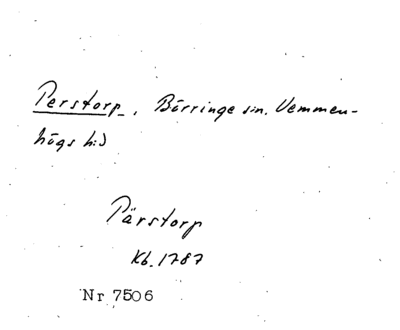 Perstorp, Börringe sn. Vemmen-
högs hd
Pärstorp
Kb. 1787
Nr 7506